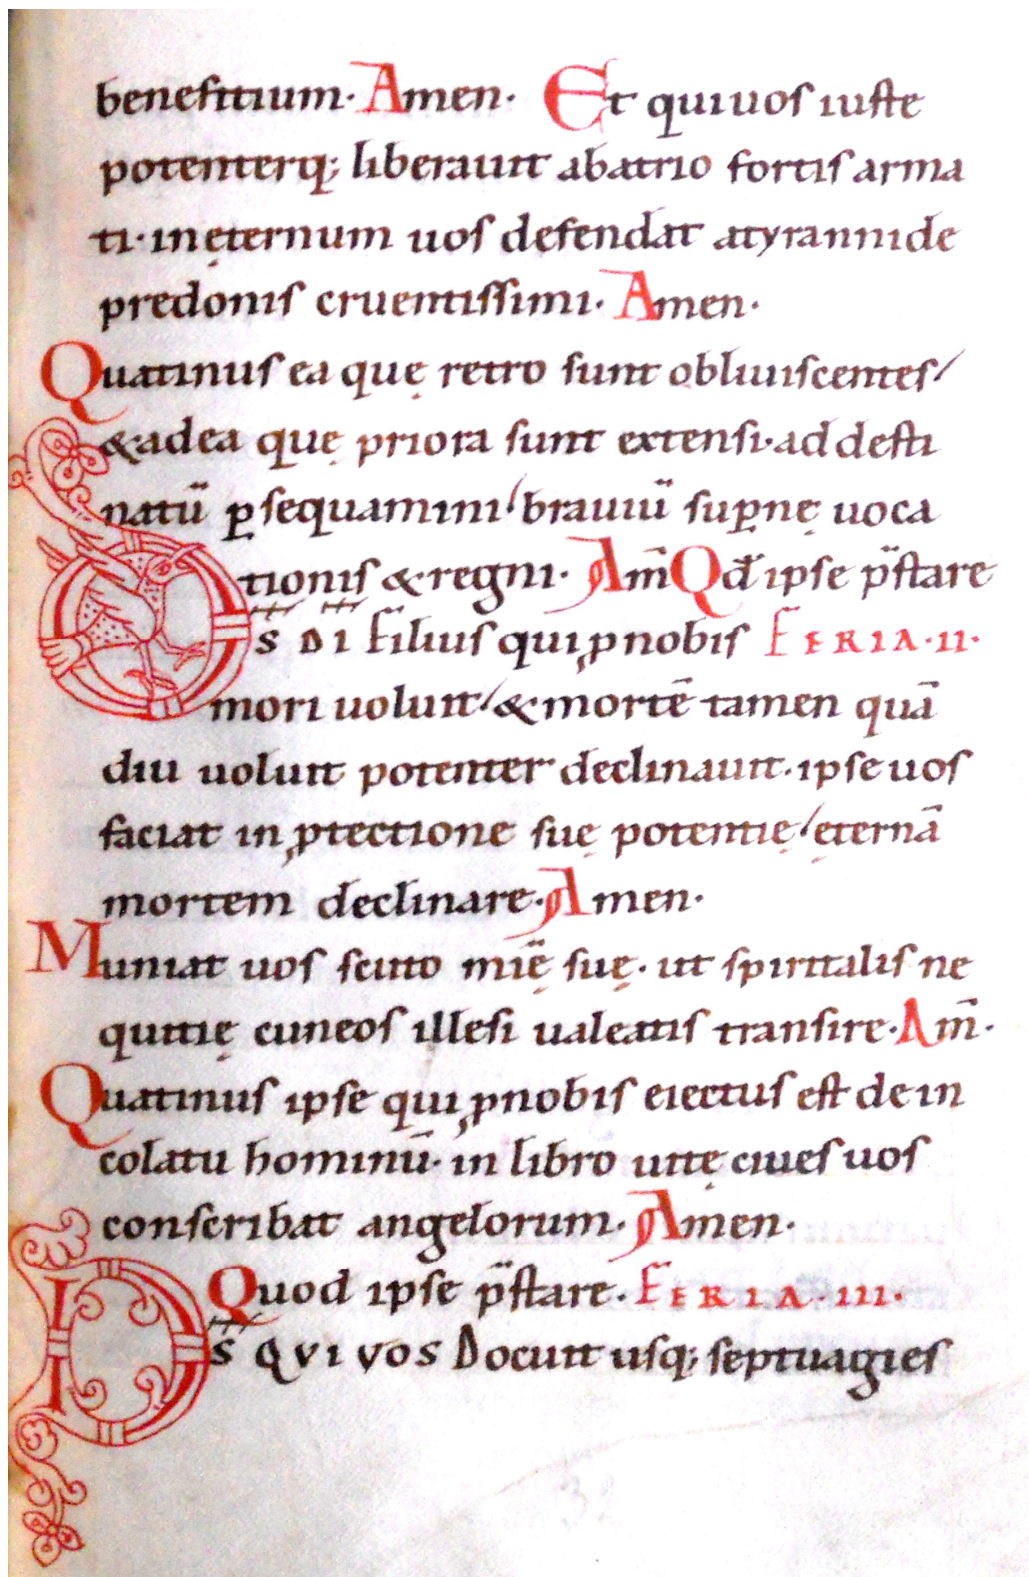 benefitium. Amen. Et qui uos iuste
potenterq; liberauit ab atrio fortis arma
ti. in ęternum uos defendat a tyrannide
predonis cruentissimi. Amen.
Quatinus ea quę retro sunt obliuiscentes/
& ad ea quę priora sunt extensi. ad desti
natū ꝑsequamini/ brauiū suꝑnę uoca
tionis & regni. Am̄ Qd̄ ipse p̄stare
D̄s D̄I Filius qui ꝓ nobis FERIA.II.
mori uoluit/ & mortē tamen quā
diu uoluit potenter declinauit. ipse uos
faciat in ꝓtectione suę potentię/ ęternā
mortem declinare. Amen.
Muniat uos scuto mię̄ suę. ut spiritalis ne
quitię cuneos illesi ualeatis transire. Am̄.
Quatinus ipse qui ꝓ nobis eiectus est de in
colatu hominū. in libro uitę ciues uos
conscribat angelorum. Amen.
Quod ipse p̄stare. FERIA.III.
D̄s QVI VOS Docuit usq; septuagies